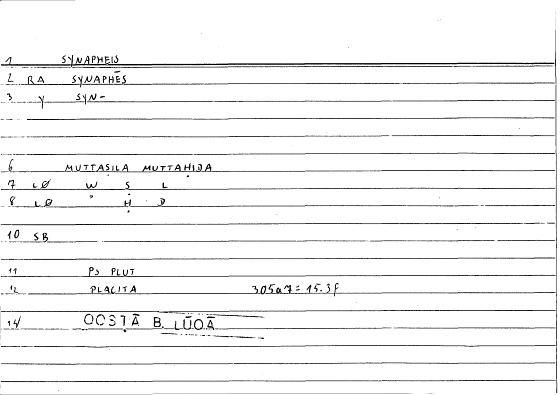 1 SYNAPHEIS
2 RA SYNAPHĒS
3 Y SYN-
6 MUTTASILA MUTTAHIDA
7 LØ W S L
8 LØ ° Ḥ D
10 SB
11 PS PLUT
12 PLACITA 305a7 = 15.3f
14 QOSṬĀ B. LŪQĀ